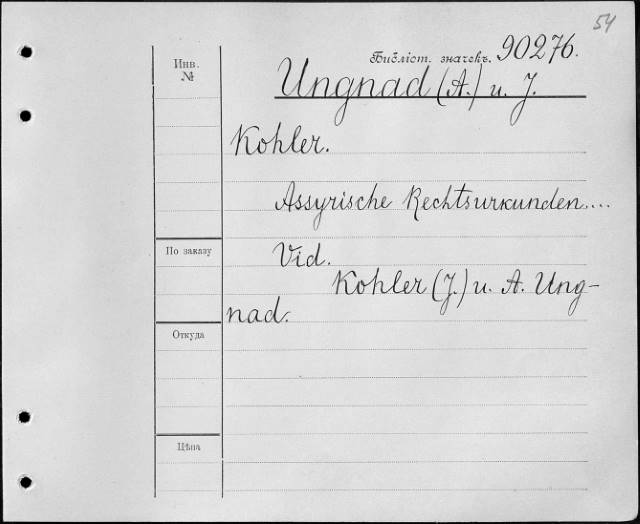 54
Инв.
№
Библіот. значекъ. 90276.
Ungnad (A.) u. J.
Kohler.
Assyrische Rechtsurkunden....
По заказу
Vid.
Kohler (J.) u. A. Ung-
nad.
Откуда
Цѣна